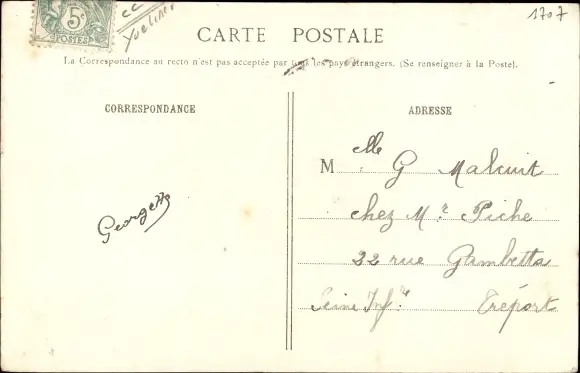 5c
POSTES
CC
Yvelines
1707
CARTE POSTALE
La Correspondance au recto n'est pas acceptée par tous les pays étrangers. (Se renseigner à la Poste).
CORRESPONDANCE
ADRESSE
Mlle G Malcuit
chez Mr. Piche
22 rue Gambetta
Seine Infre. Tréport
Georgette